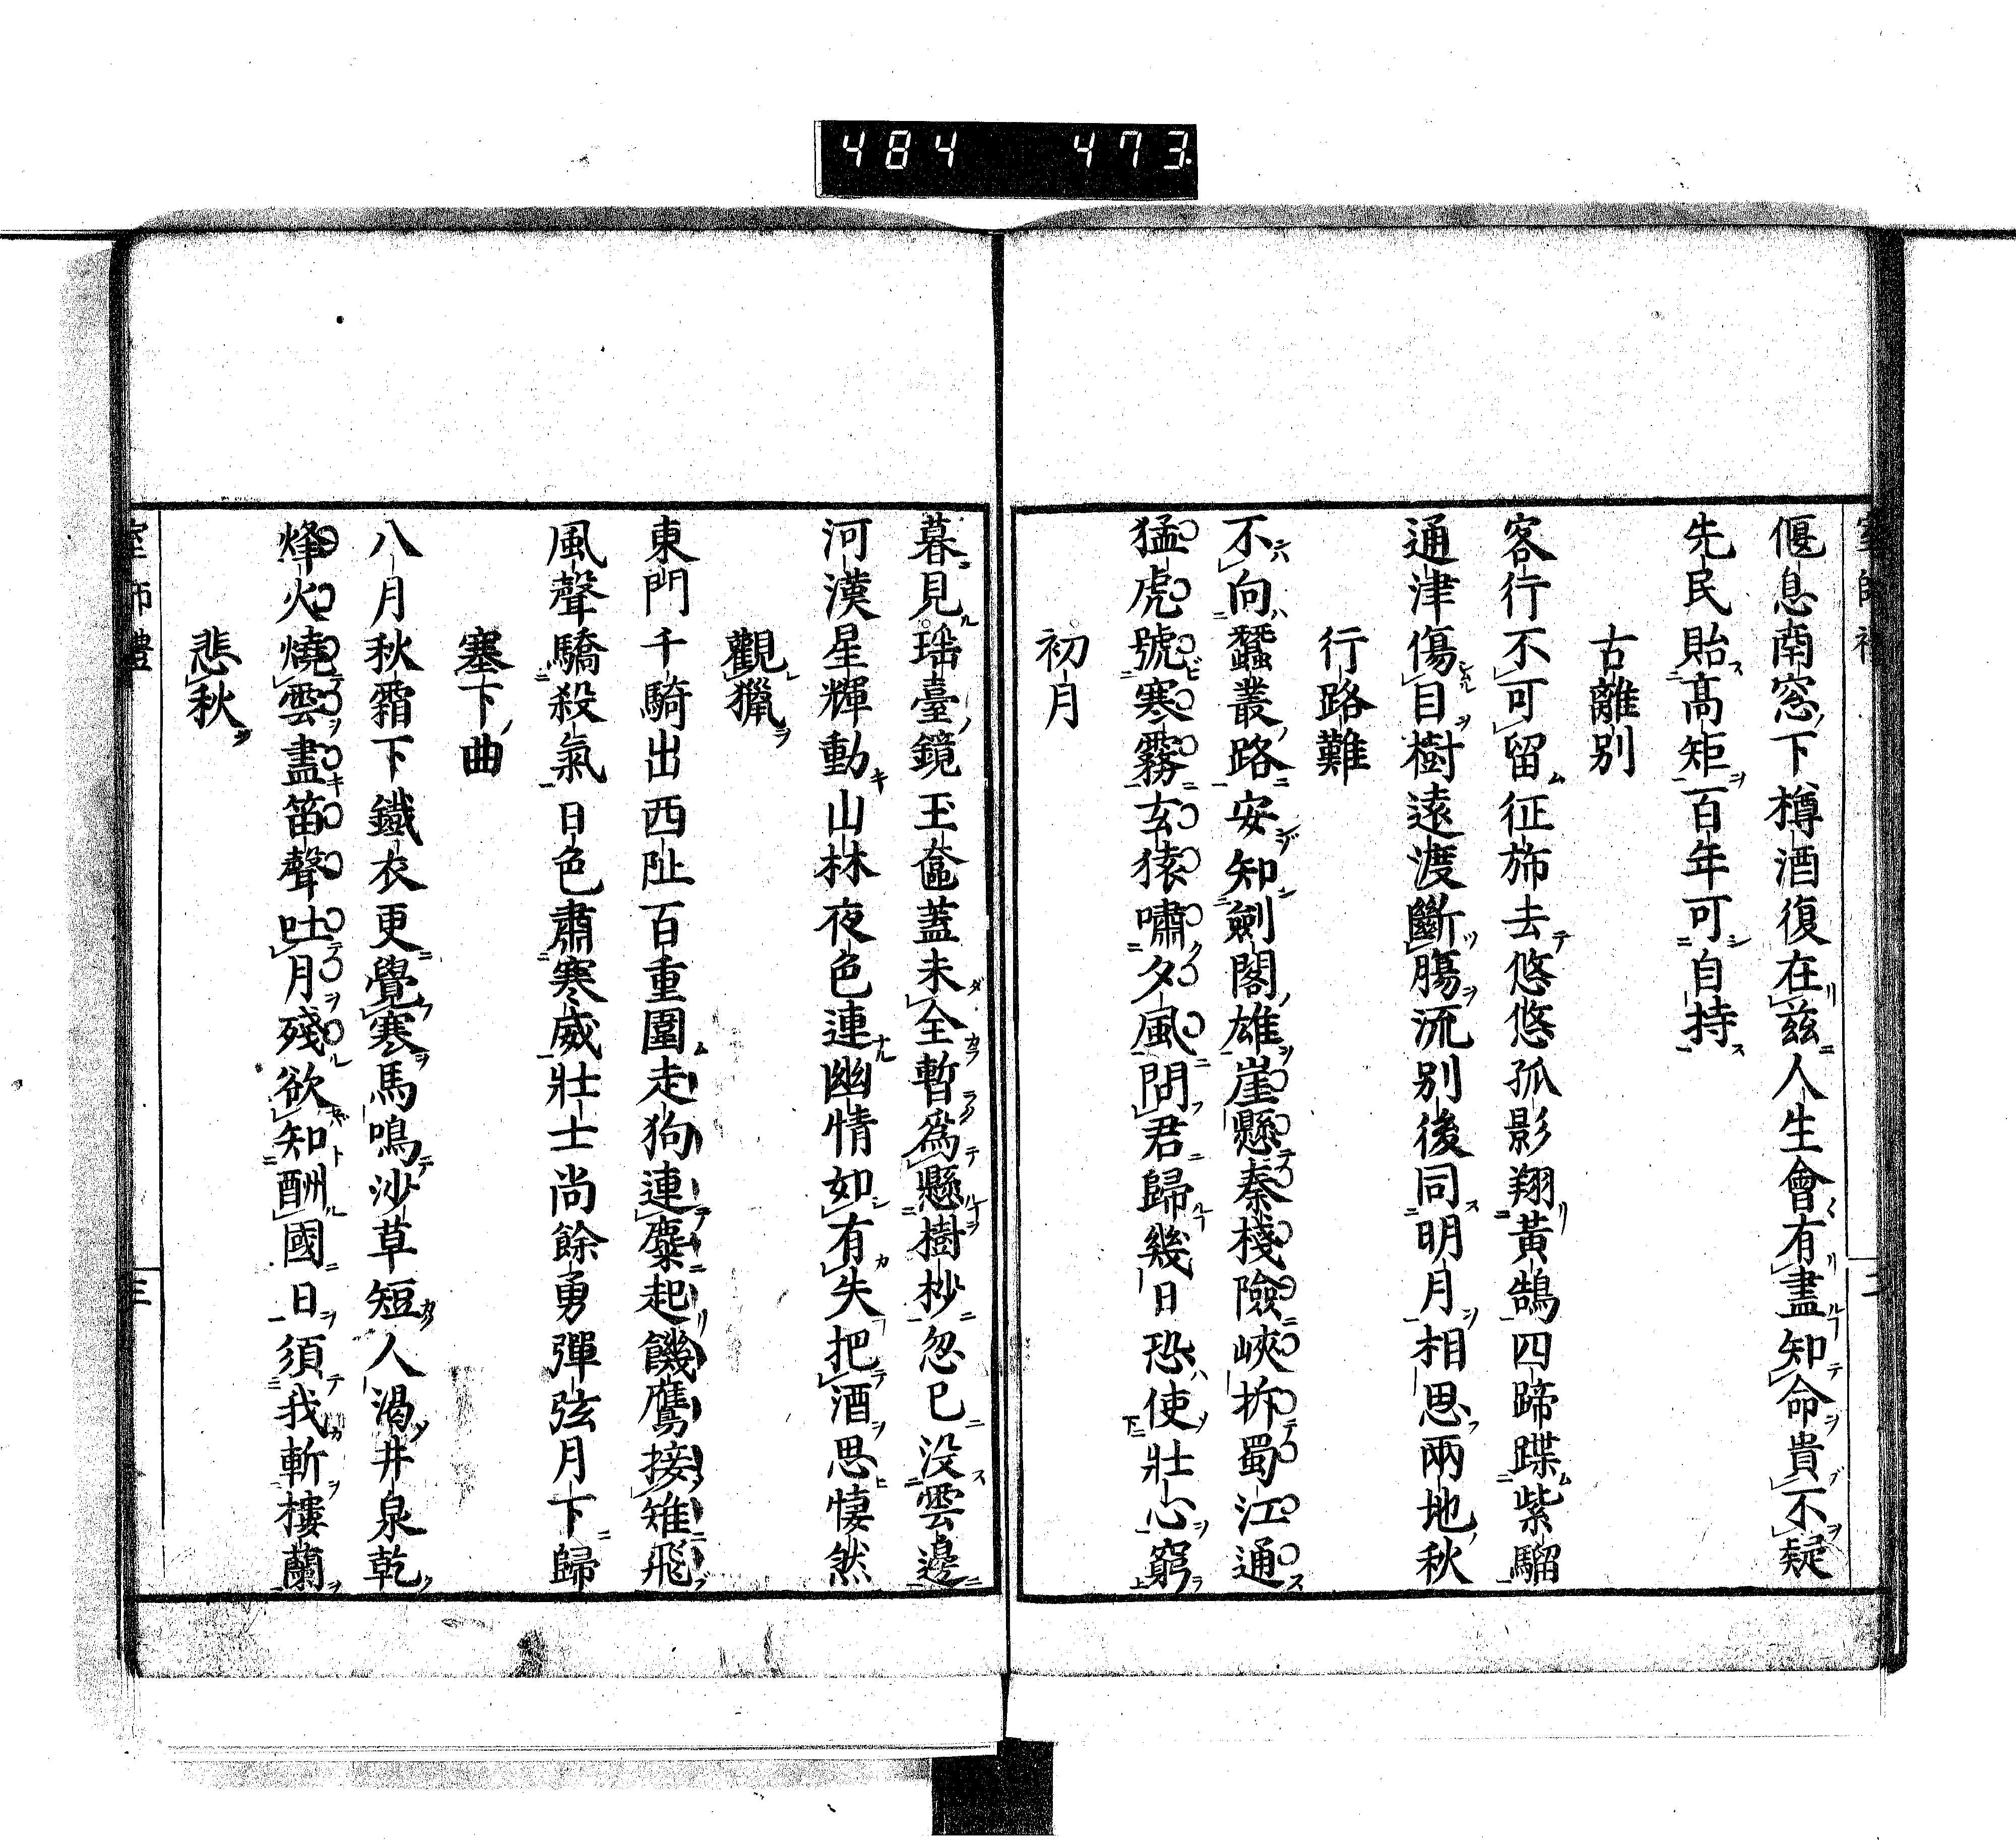 484 473
偃息南窓下樽酒復在兹人生會有盡知命貴不疑
先民貽高矩百年可自持
古離別
客行不可留征斾去悠悠孤影翔黃鵠四蹄蹀紫騮
通津傷目樹遠渡斷膓流別後同明月相思兩地秋
行路難
不向蠶叢路安知劍閣雄崖懸秦棧險峽拆蜀江通
猛虎號寒霧玄猿嘯夕風問君歸幾日恐使壯心窮
初月
暮見瑶臺鏡玉奩蓋未全暫爲懸樹杪忽已没雲邊
河漢星輝動山林夜色連幽情如有失把酒思悽然
觀獵
東門千騎出西阯百重圍走狗連麋起饑鷹接雉飛
風聲驕殺氣日色肅寒威壯士尚餘勇彈弦月下歸
塞下曲
八月秋霜下鐵衣更覺寒馬鳴沙草短人渴井泉乾
烽火燒雲盡笛聲吐月殘欲知酬國日須我斬樓蘭
悲秋
三